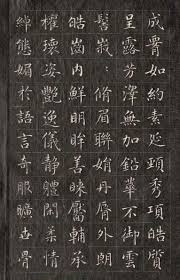 成要如約素延頸秀項皓質
呈露芳澤無加鉛華不御雲
髻峩〻脩眉聯娟丹脣外朗
皓齒內鮮明眸善睞靨輔承
權瓌姿艷逸儀靜體閑柔情
綽態媚於語言奇服曠世骨